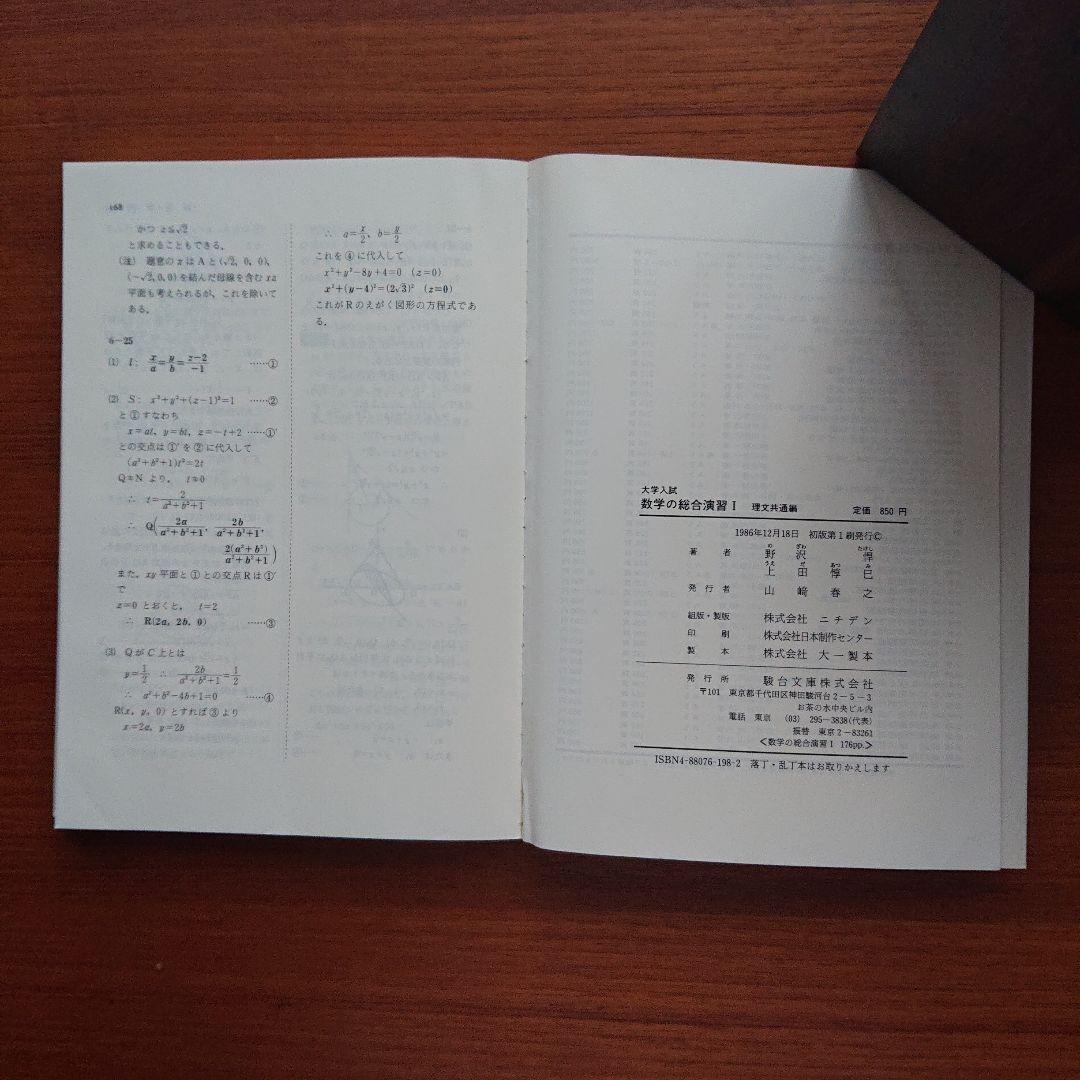 168
かつ z≦√2
と求めることもできる.
(注) 題意のπはAと(√2, 0, 0),
(−√2,0,0)を結んだ母線を含むxz
平面も考えられるが, これを除いて
ある.
6−25
(1) l: x/a=y/b=(z−2)/−1 ……①
(2) S: x²+y²+(z−1)²=1 ……②
と①すなわち
x=at, y=bt, z=−t+2 ……①′
との交点は①′を②に代入して
(a²+b²+1)t²=2t
Q≠Nより, t≠0
∴ t=2/(a²+b²+1)
∴ Q(2a/(a²+b²+1), 2b/(a²+b²+1),
2(a²+b²)/(a²+b²+1))
また, xy平面と①との交点Rは①′
で
z=0とおくと, t=2
∴ R(2a, 2b, 0) ……③
(3) QがC上とは
y=1/2 ∴ 2b/(a²+b²+1)=1/2
∴ a²+b²−4b+1=0 ……④
R(x, y, 0)とすれば③より
x=2a, y=2b
∴ a=x/2, b=y/2
これを④に代入して
x²+y²−8y+4=0 (z=0)
x²+(y−4)²=(2√3)² (z=0)
これがRのえがく図形の方程式であ
る.
大学入試
数学の総合演習Ⅰ 理文共通編 定価 850円
1986年12月18日 初版第1刷発行©
の ざわ たけし
著者 野沢 悍
うえ だ あつ み
上田惇巳
発行者 山﨑春之
組版・製版 株式会社 ニチデン
印刷 株式会社日本制作センター
製本 株式会社 大一製本
発行所 駿台文庫株式会社
〒101 東京都千代田区神田駿河台2−5−3
お茶の水中央ビル内
電話 東京 (03) 295−3838(代表)
振替 東京2−83261
<数学の総合演習Ⅰ 176pp.>
ISBN4-88076-198-2 落丁・乱丁本はお取りかえします